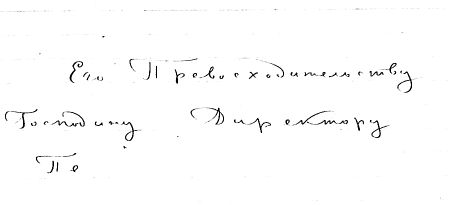 Его Превосходительству
Господину Директору
Пе